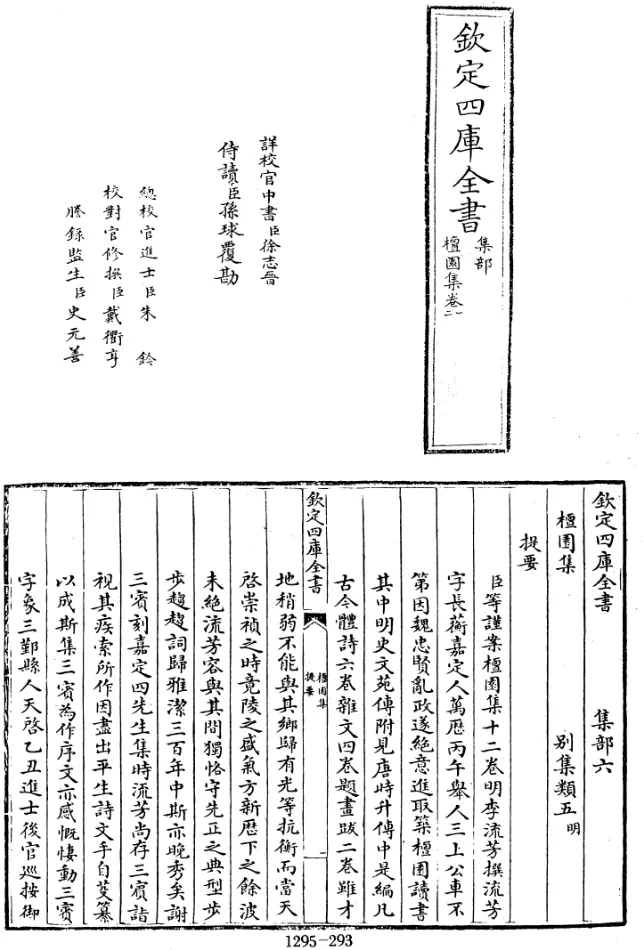 欽定四庫全書
集部
檀園集卷一
二
詳校官中書臣徐志晉
侍讀臣孫球覆勘
總校官進士臣朱鈐
校對官修撰臣戴衢亨
謄錄監生臣史元善
欽定四庫全書 集部六
檀園集 別集類五明
提要
臣等謹案檀園集十二卷明李流芳撰流芳
字長蘅嘉定人萬歷丙午舉人三上公車不
第因魏忠賢亂政遂絶意進取築檀園讀書
其中明史文苑傳附見唐時升傳中是編凡
古今體詩六卷雜文四卷題畫跋二卷雖才
欽定四庫全書 檀園集提要 一
地稍弱不能與其鄉歸有光等抗衡而當天
啓崇禎之時竟陵之盛氣方新歴下之餘波
未絶流芳容與其間獨恪守先正之典型步
步趨趨詞歸雅潔三百年中斯亦晚秀矣謝
三賓刻嘉定四先生集時流芳尚存三賓詣
視其疾索所作因盡出平生詩文手自芟纂
以成斯集三賓為作序文亦感慨悽動三賓
字象三鄞縣人天啓乙丑進士後官巡按御
1295-293